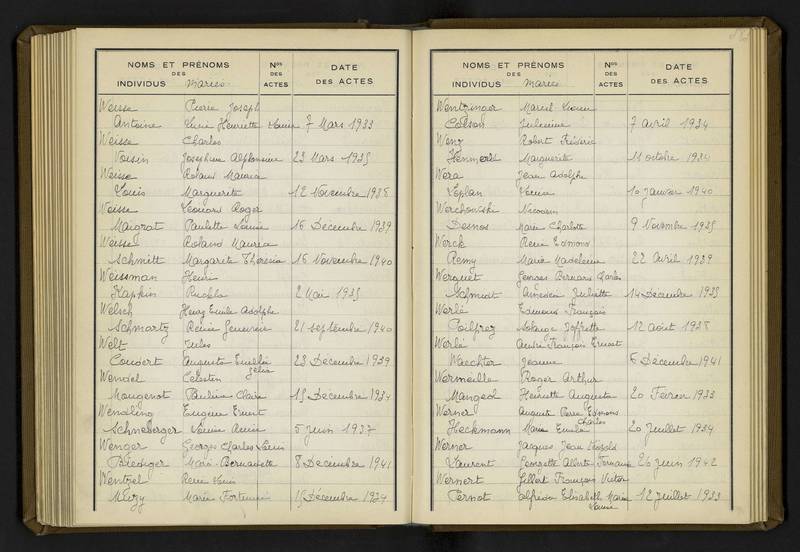 NOMS ET PRÉNOMS DES INDIVIDUS Mariés
Nos DES ACTES
DATE DES ACTES
Weisse Pierre Joseph
Antoine Lucie Henriette Marie 7 Mars 1933
Weisse Charles
Voisin Josephine Alphonsine 23 Mars 1935
Weisse Roland Maurice
Louis Marguerite 12 Novembre 1938
Weisse Léonard Roger
Maigrat Paulette Louise 16 Décembre 1939
Weisse Roland Maurice
Schmitt Margareta Theresia 16 Novembre 1940
Weissman Henri
Kapkin Ruchla 2 Mai 1935
Welsch Henry Emile Adolphe
Schmartz Renée Genevieve 21 septembre 1940
Welt Jules
Couvert Augusta Emélie 23 Décembre 1939
Wendel Célestin
Mougenot Pauline Claire 15 Décembre 1934
Wendling Eugène Ernest
Schneberger Louise Anna 5 juin 1937
Wenger Georges Charles Louis
Biediger Marie Bernadette 8 Décembre 1941
Wentzel René Louis
Muzy Marie Fortunée 15 Décembre 1934
NOMS ET PRÉNOMS DES INDIVIDUS Mariés
Nos DES ACTES
DATE DES ACTES
Wentzinger Marcel Lucien
Colson Julienne 7 Avril 1934
Weny Robert Fréderic
Hemmerlé Marguerite 11 octobre 1934
Wera Jean Adolphe
Leplan Louise 10 Janvier 1940
Werchowske
Desnos Marie Charlotte 9 Novembre 1935
Werck René Edmond
Remy Maria Madeleine 22 Avril 1939
Werguet Georges Bernard Charles
Schmidt Juliette 14 Décembre 1935
Werlé Edmond François
Poilprez Solange 12 Aout 1938
Werlé André François Ernest
Waechter Jeanne 6 Décembre 1941
Wermeille Roger Arthur
Mangeol Henriette Augusta 20 Fevrier 1933
Werner August Pierre Edmond Charles
Heckmann Marie Emélie 20 Juillet 1934
Werner Jacques Jean Léopold
Laurent Georgette Alberte Fernande 26 juin 1942
Wernert Gilbert François Victor
Pernot Alfréda Elisabeth Marie Louise 12 Juillet 1933